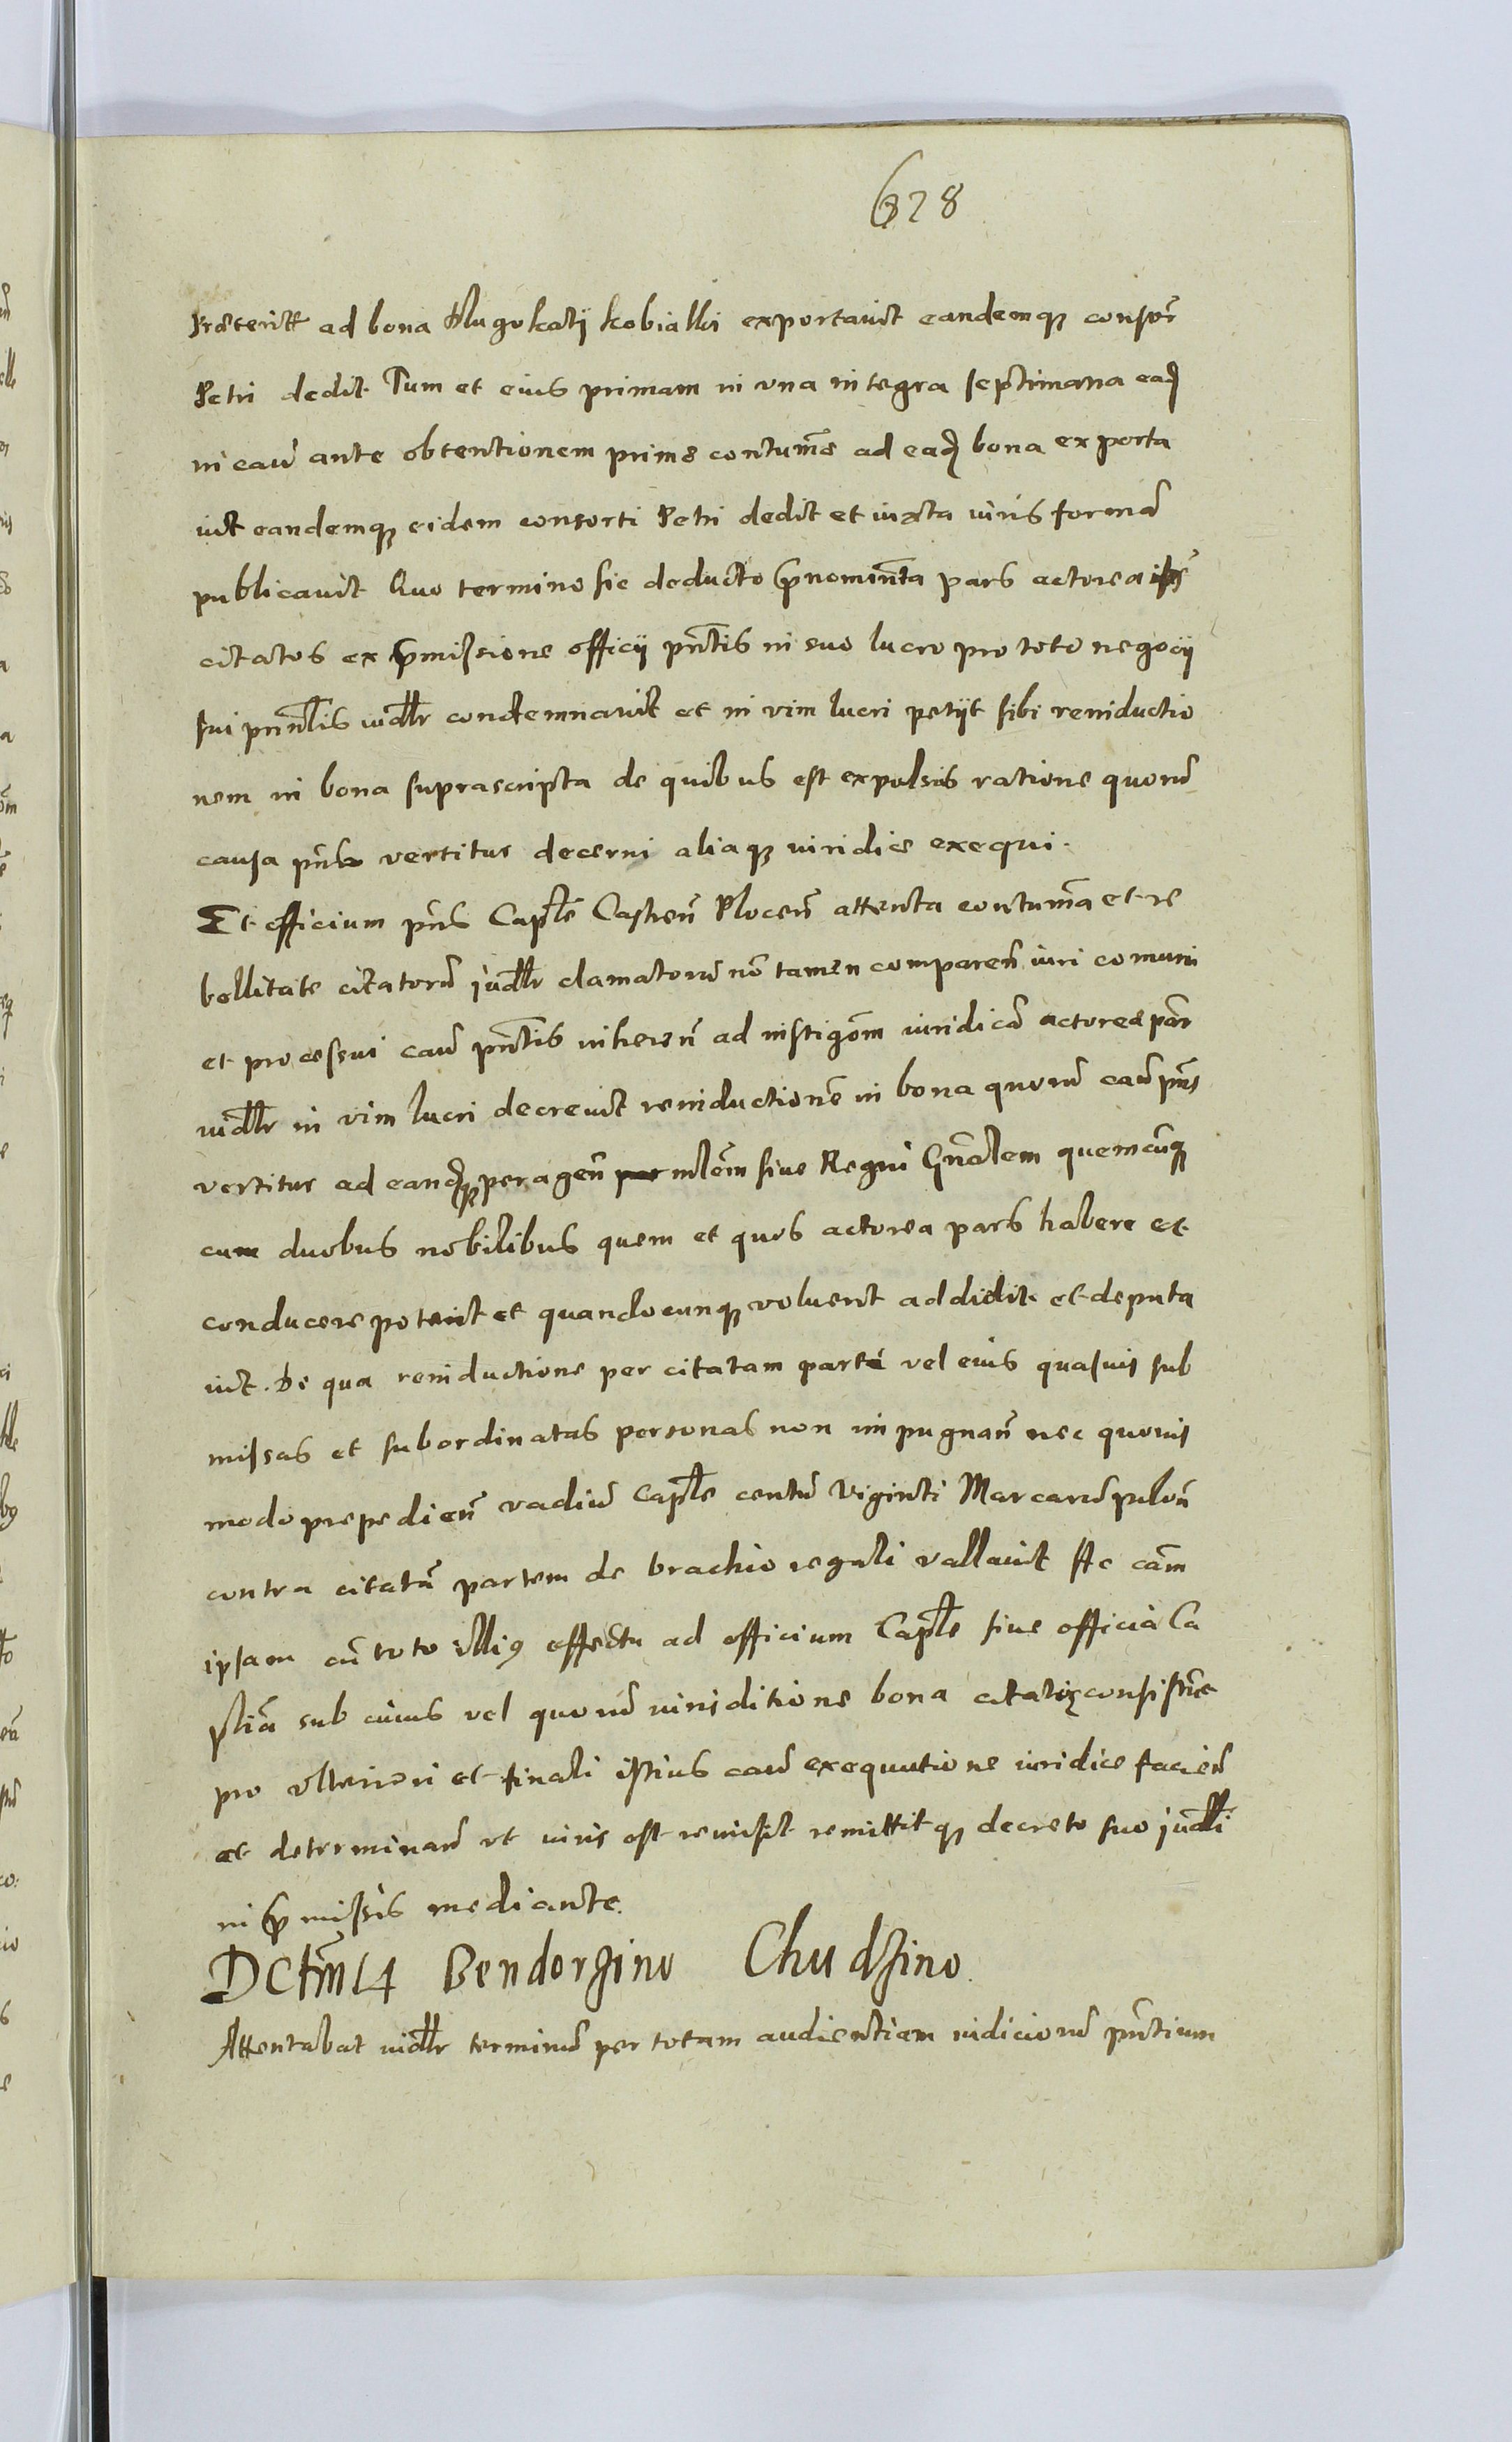 628
præterit ad bona Dlugokąty Kobialki exportavit eandemq consorti
Petri dedit Tum et eius primam in una integra septimana ead
in cau ante obtentionem prime contumae ad ead bona exporta
uit eandemq eidem consorti Petri dedit et iuxta iuris formā
publicavit Quo termino sic deducto prenominata pars actorea ipsos
citatos ex permissione officij pntis in suo lucro pro toto negocij
sui prinlis iudlr condemnavit et in vim lucri petijt sibi reinductio
nem in bona suprascripta de quibus est expulsus ratione quorū
causa pns vertitur decerni aliaq iuridice exequi.
Et officium pns Capitle Castren Plocen attenta contuma et re
bellitate citatorū judlr clamatorū nō tamen comparen iuri comuni
et processui cau pntis inheren ad instigom iuridicā actoree par
iudlr in vim lucri decrevit reinductionē in bona quorū cau pns
vertitur ad eandq peragen mlem sive Regni Gnalem quemcūq
cum duobus nobilibus quem et quos actorea pars habere et
conducere poterit et quandocunq voluerit addidit et deputa
uit. De qua reinductione per citatam partē vel eius quasuis sub
missas et subordinatas personas non impugnan nec quouis
modo prepedien vadiū Capitle centū Viginti Marcarū polon
contra citatā partem de brachio regali vallavit Ac cām
ipsam cū toto illi9 effectu ad officium Capitle sive officia Ca
stria sub cuius vel quorū iurisditione bona citatorum consistūt
pro vlteriori et finali istius cau exequutione iuridice facien
et determinan vt iuris est remisit remittitq decreto suo judli
in premissis mediante.
Dctm̄ 14 Bendorzino Chudzino.
Attentabat iudlr terminū per totam audientiam iudiciorū pntium